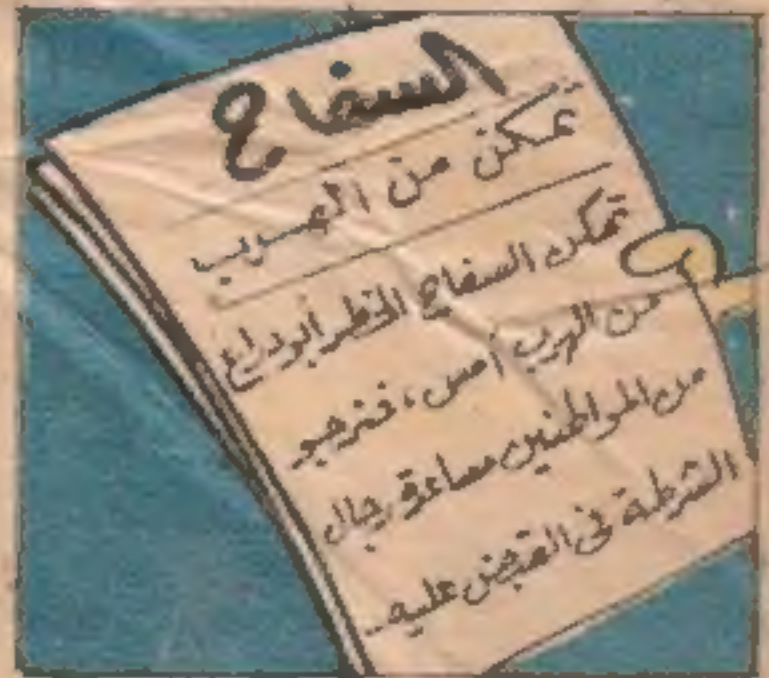 السفاح
تمكن من الهرب
تمكن السفاح الخطر أبو دراع
من الهرب أمس، فنرجو
من المواطنين مساعدة رجال
الشرطة فى القبض عليه..